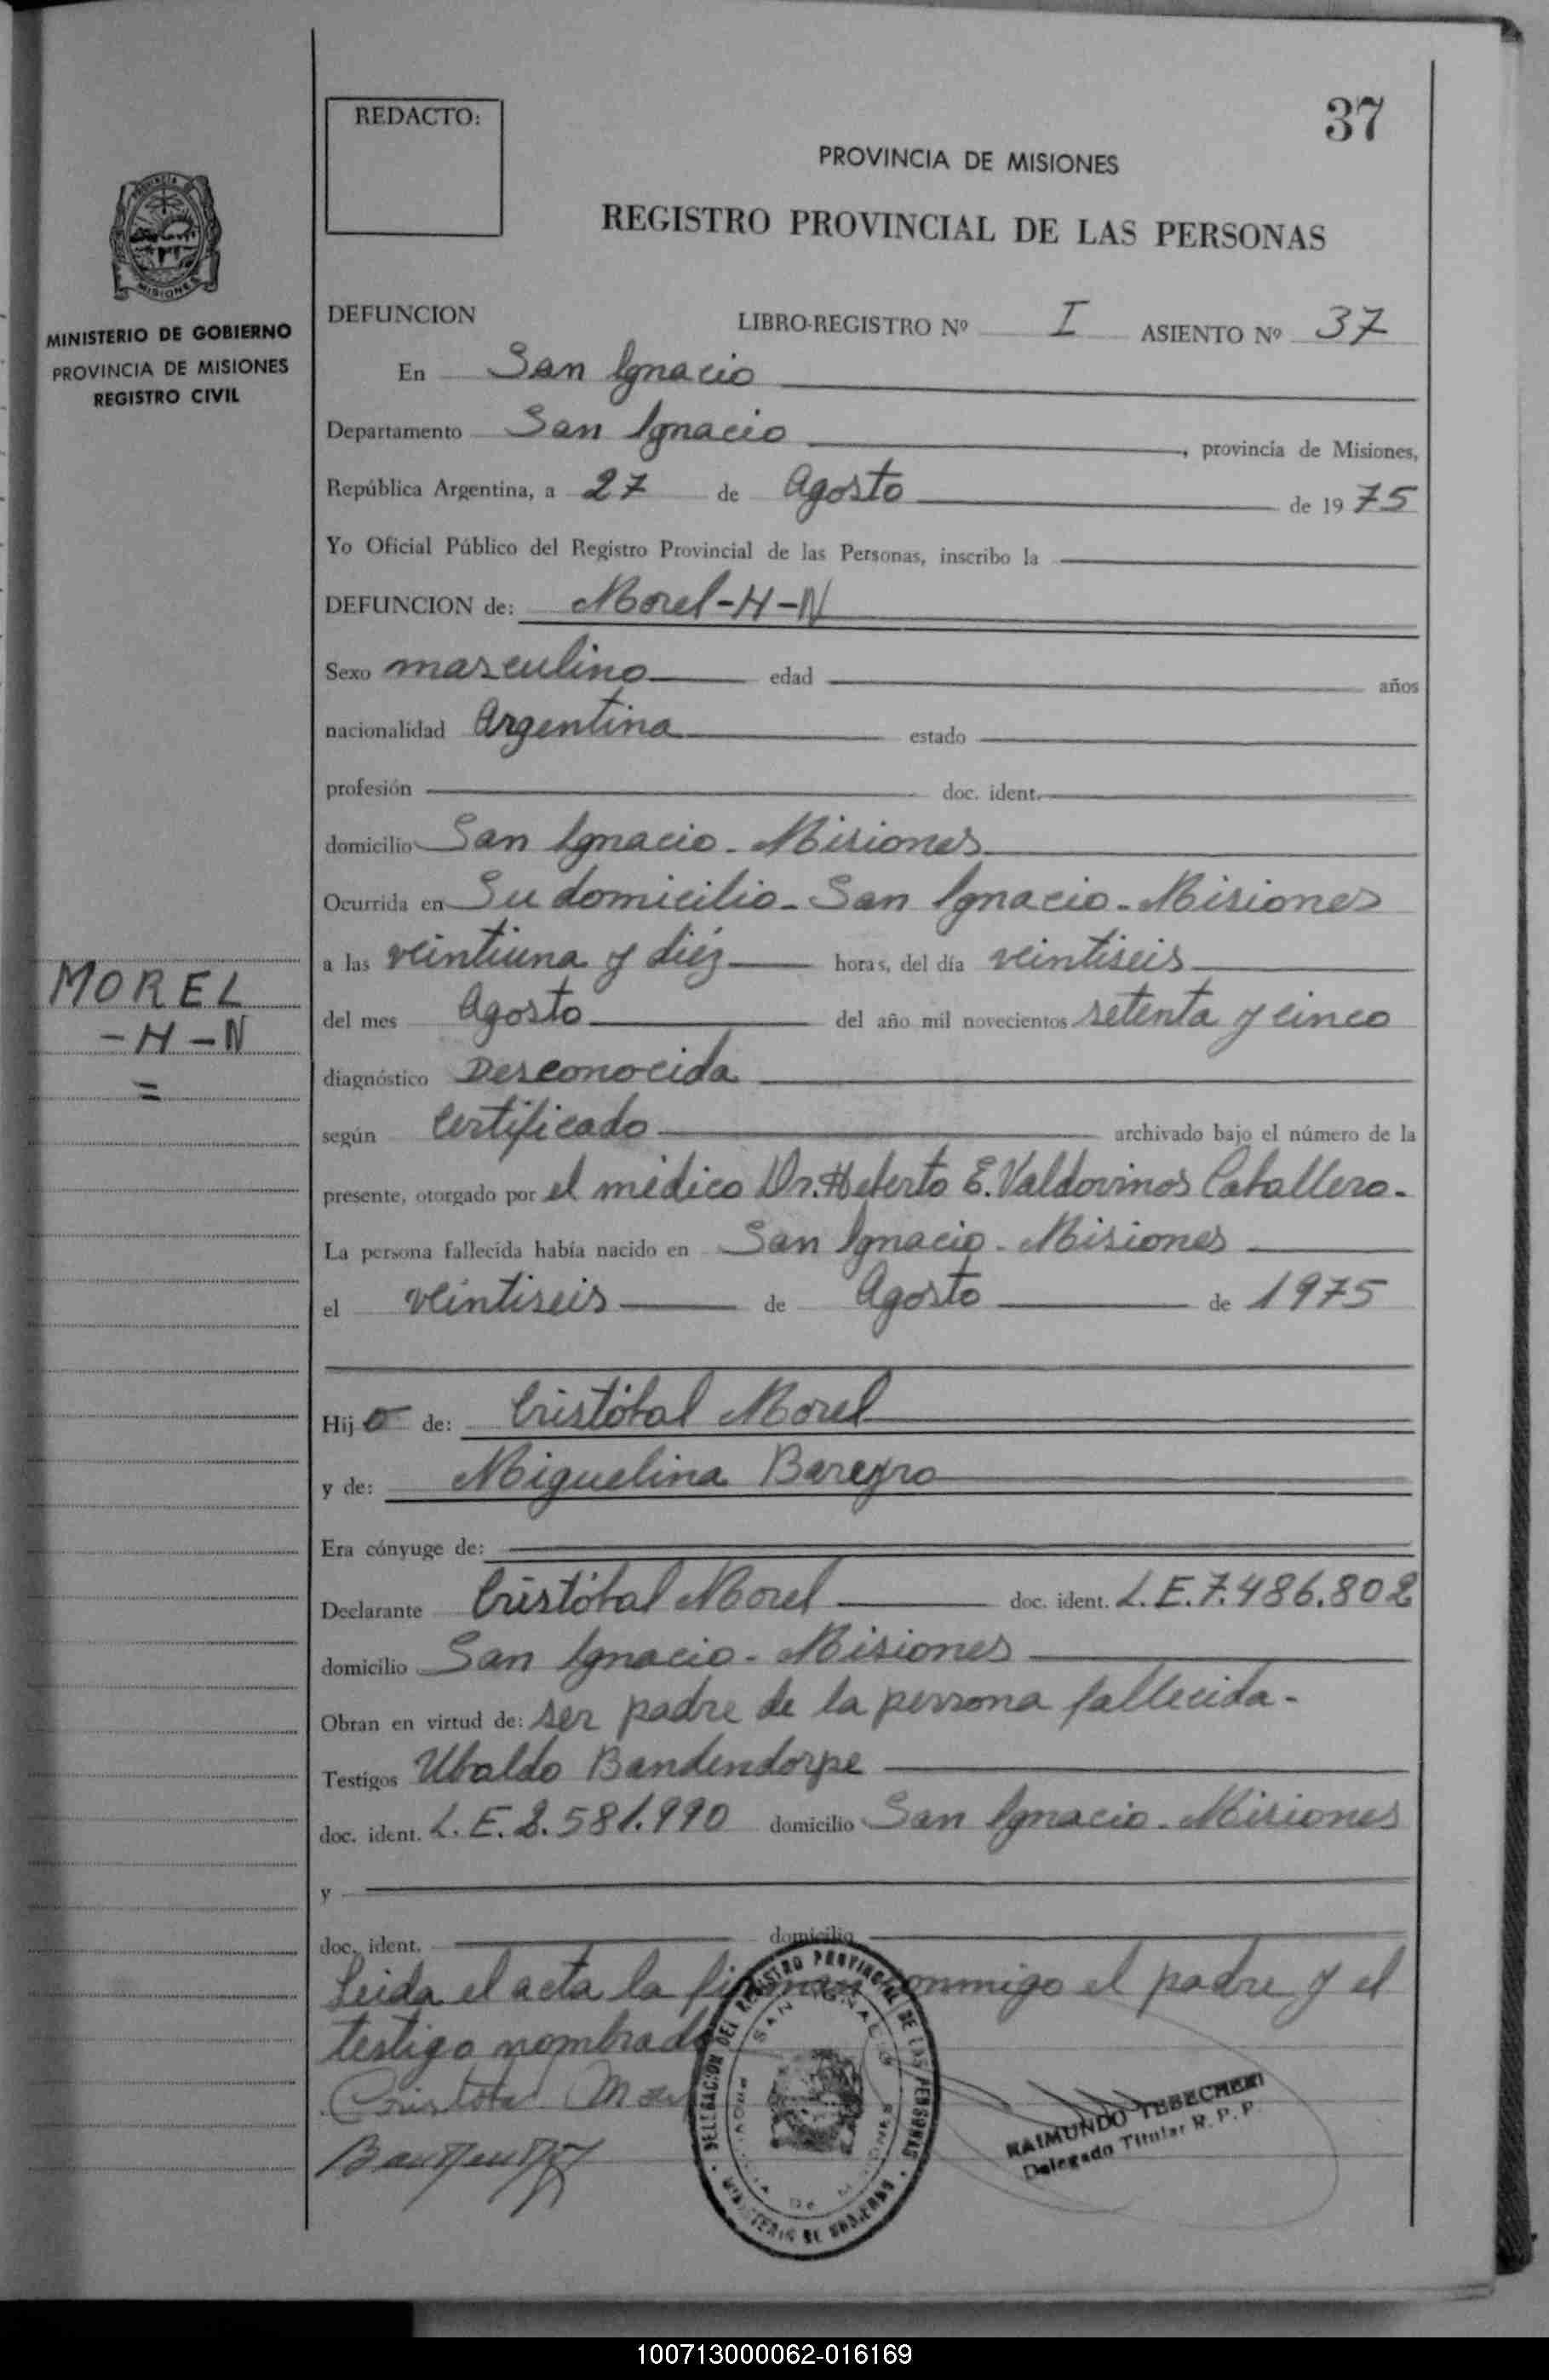 37
REDACTO:
PROVINCIA DE MISIONES
REGISTRO PROVINCIAL DE LAS PERSONAS
MISIONES
MINISTERIO DE GOBIERNO
PROVINCIA DE MISIONES
REGISTRO CIVIL
DEFUNCION LIBRO-REGISTRO Nº I ASIENTO Nº 37
En San Ignacio
Departamento San Ignacio, provincia de Misiones,
República Argentina, a 27 de Agosto de 1975
Yo Oficial Público del Registro Provincial de las Personas, inscribo la
DEFUNCION de: Morel-H-N
Sexo masculino edad años
nacionalidad Argentina estado
profesión doc. ident.
domicilio San Ignacio - Misiones
Ocurrida en Su domicilio - San Ignacio - Misiones
a las veintiuna y diéz horas, del día veintiseis
del mes Agosto del año mil novecientos setenta y cinco
MOREL
-H-N
=
diagnóstico Desconocida
según Certificado archivado bajo el número de la
presente, otorgado por el médico Dr. Heberto E. Valdovinos Caballero.
La persona fallecida había nacido en San Ignacio - Misiones
el veintiseis de Agosto de 1975
Hijo de: Cristóbal Morel
y de: Miguelina Bareyro
Era cónyuge de:
Declarante Cristóbal Morel doc. ident. L.E.7.486.802
domicilio San Ignacio - Misiones
Obran en virtud de: ser padre de la persona fallecida -
Testigos Ubaldo Bandendorpe
doc. ident. L.E.2.581.990 domicilio San Ignacio - Misiones
y
doc. ident. domicilio
Leida el acta la firman conmigo el padre y el
testigo nombrado
DELEGACION DEL REGISTRO PROVINCIAL DE LAS PERSONAS
SAN IGNACIO
MINISTERIO DE GOBIERNO
RAIMUNDO TEBECHERI
Delegado Titular R. P. P.
100713000062-016169